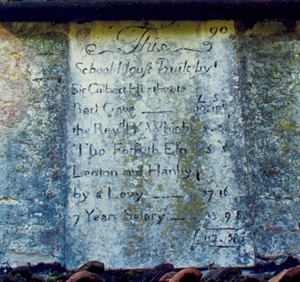 17 90
This
School House Built by
Sir Gilbert Heathcote
Bart Gave
the Revd
Tho Forsyth Esq 5 5
Lenton and Hanby
by a Levy 37.16
7 Years Salary 33 9 8